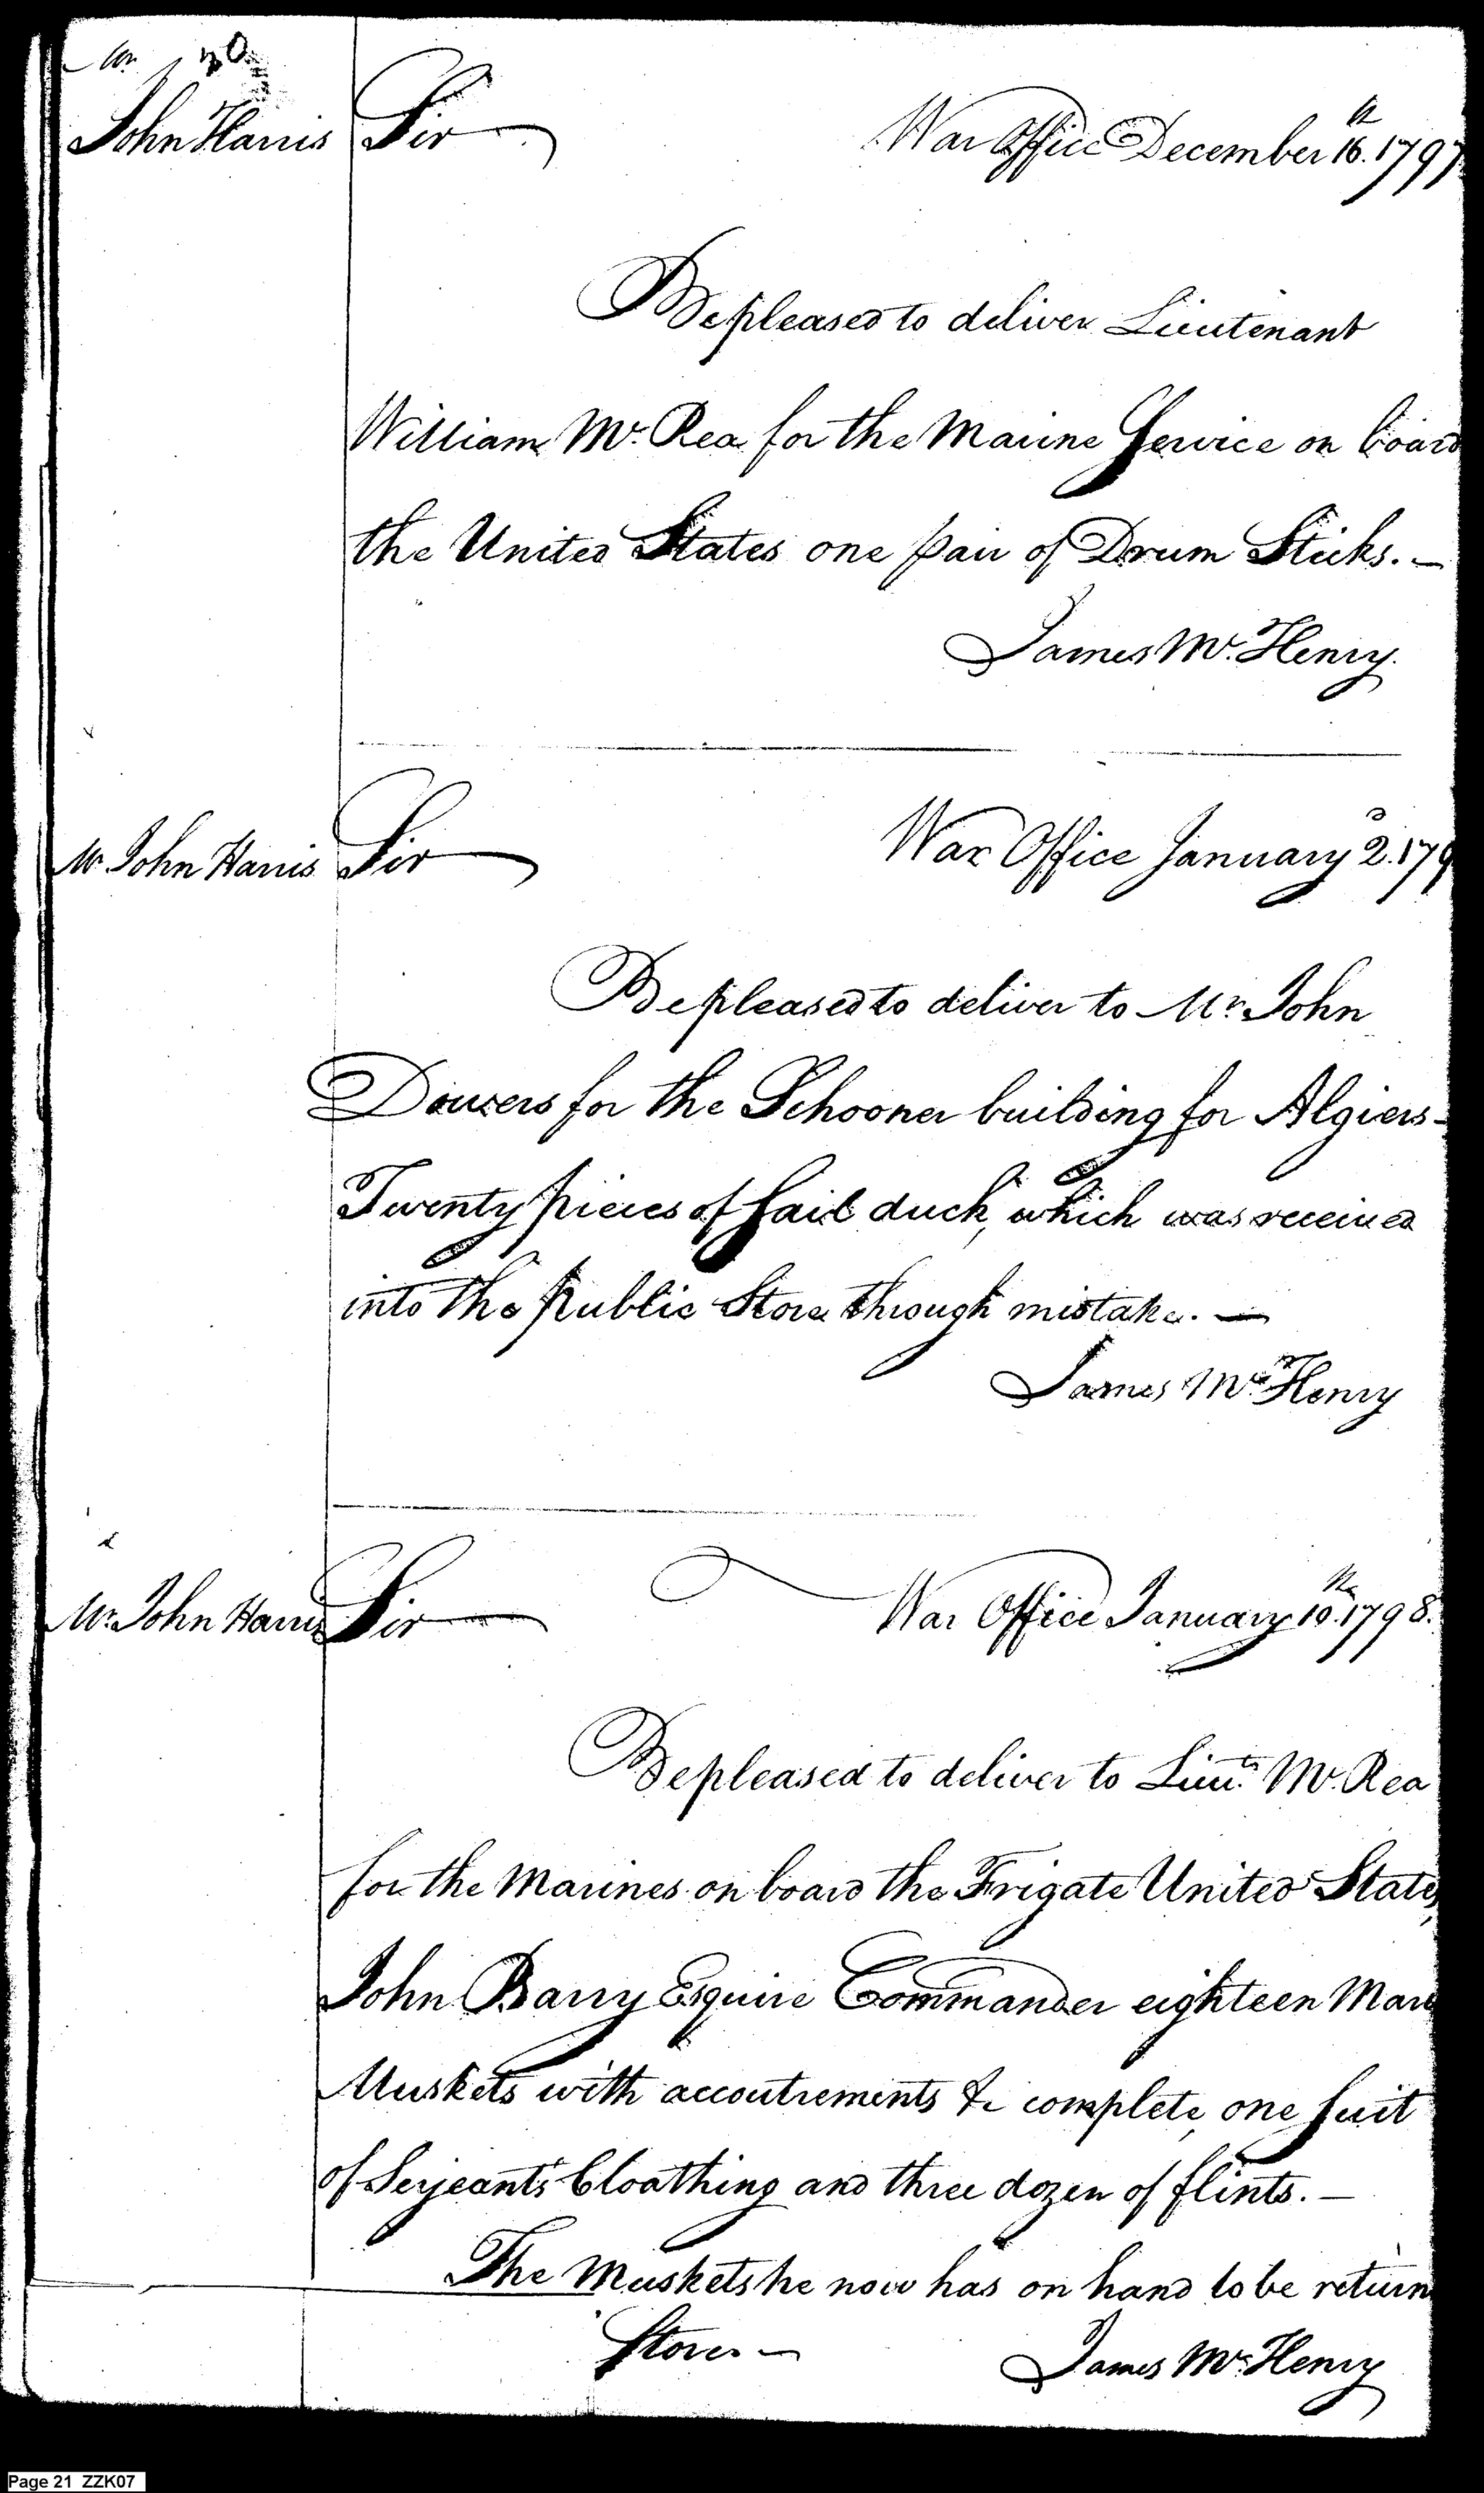 Mr 20
John Harris Sir War Office December 16th. 1797
Be pleased to deliver Lieutenant
William Mc. Rea for the Marine Service on board
the United States one pair of Drum Sticks. —
James Mc. Henry.
Mr. John Harris Sir War Office January 2d. 179
Be pleased to deliver to Mr. John
for the Schooner building for Algiers-
Twenty pieces of Sail duck, which was received
into the public Store through mistake. —
James Mc. Henry
Mr. John Harris Sir War Office January 10th. 1798.
Be pleased to deliver to Lieut. Mc. Rea
for the Marines on board the Frigate United States,
John Barry Esquire Commander eighteen Mari
Muskets with accoutrements &c complete, one Suit
of Serjeant's Cloathing and three dozen of flints. —
The Muskets he now has on hand to be return
Store. —
James Mc. Henry
Page 21 ZZK07